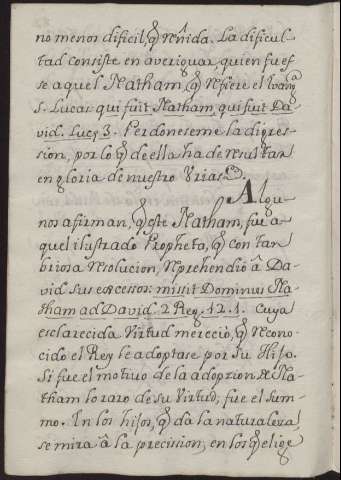 no menos dificil, q̃ reñida. La dificul-
tad consiste en averiguar quien fuese
se aquel Natham, q̃ refiere el Evang.ᵃ
S. Lucas qui fuit Natham, qui fuit Da-
vid. Lucę 3. Perdoneseme la digres-
sion, por lo q̃ de ella ha de resultar
en gloria de nuestro Urias.
Algu-
nos afirman, q̃ este Natham, fue a-
quel ilustrado Propheta, q̃ con tan
briosa resolucion, reprehendiò â Da-
vid sus excessos: missit Dominus Na-
tham ad David. 2 Reg. 12. 1. Cuya
esclarecida Virtud mereciò, q̃ recono-
cido el Rey le adoptase por su Hijo.
Si fue el motivo de la adopcion de Na-
tham lo raro de su Virtud, fue el sum-
mo. En los hijos, q̃ dà la naturaleza,
se mira â la precision; en los q̃ elige